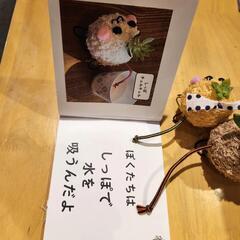 ぼくたちは
しっぽで
水を
吸うんだよ